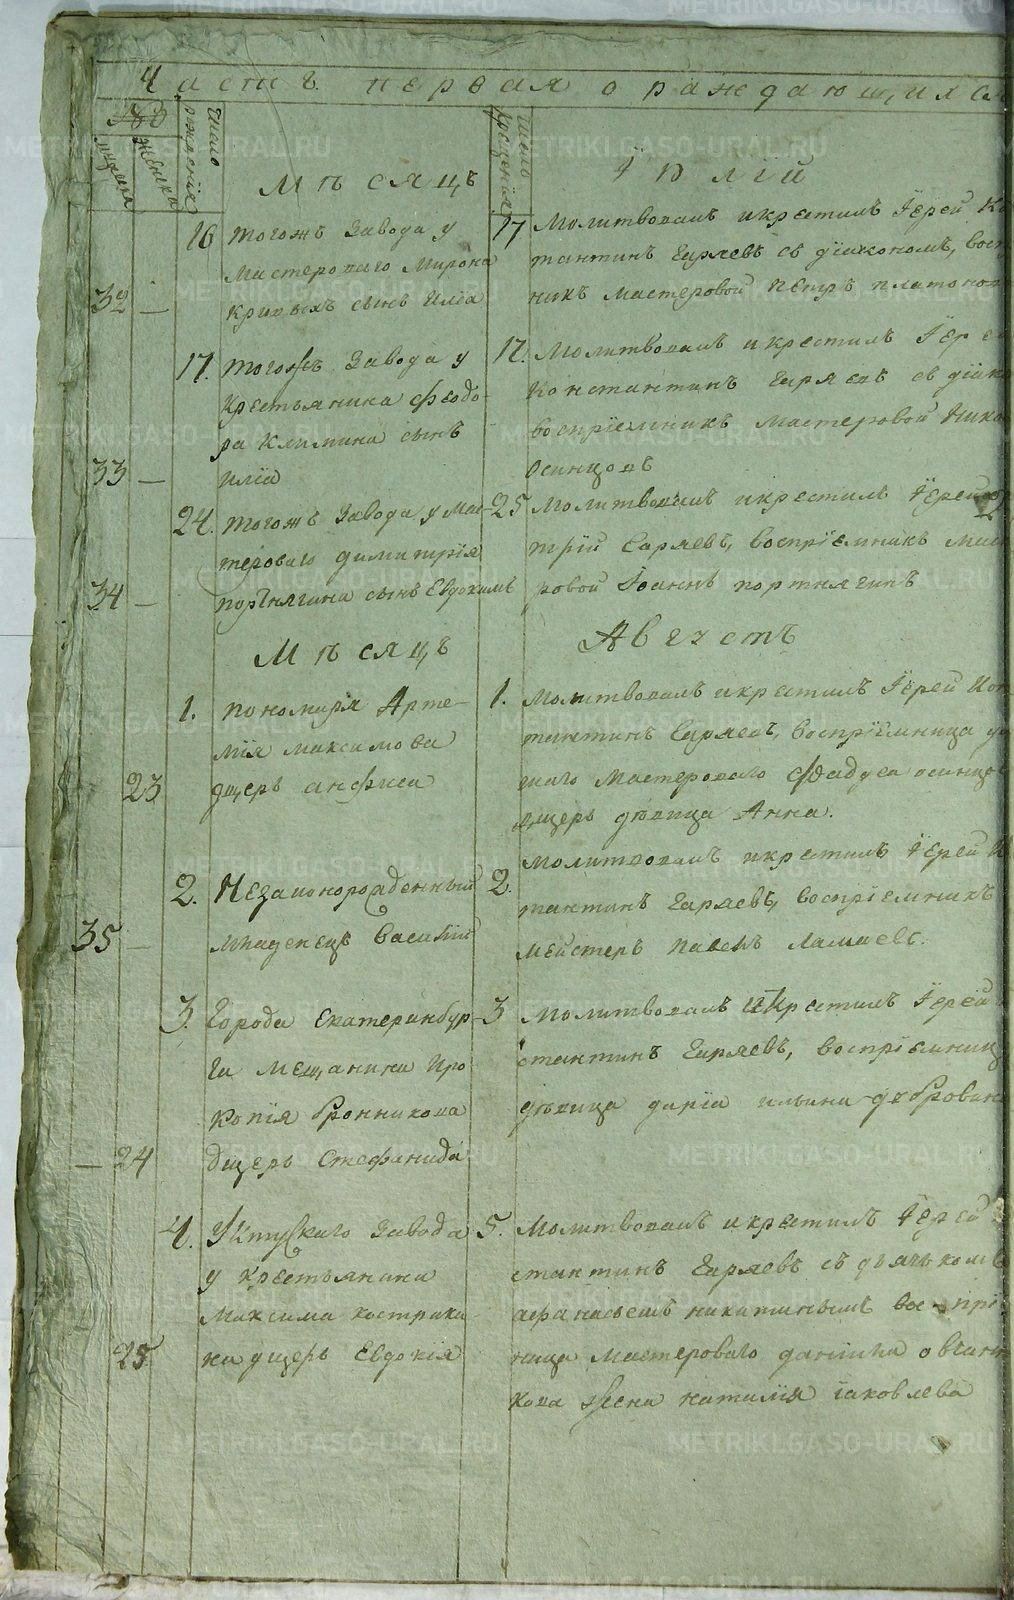 Часть первая о раждающихся
№
мужеска
женска
Число рожденія
Число крещенія
Мѣсяцъ
Іюлій
32 —
16
Тогожъ Завода у
Мастероваго Мирона
Кривыхъ сынъ Иліа
17
Молитвовалъ и крестилъ Іерей
тантинъ Гаряевъ съ діакономъ,
никъ мастеровой Петръ
33 —
17.
Тогожъ Завода у
крестьянина Феодо-
ра Климина сынъ
Иліа
17.
Молитвовалъ и крестилъ
Константинъ Гаряевъ съ
воспріемникъ Мастеровой
Осинцовъ
34 —
24.
Тогожъ Завода у Мас-
тероваго Димитрія
Портнягина сынъ Евдокимъ
25
Молитвовалъ и крестилъ Іерей
трій Гаряевъ, воспріемникъ
ровой Іоаннъ портнягинъ
Мѣсяцъ
Августъ
23
1.
Пономаря Арте-
мія Максимова
дщерь анфиса
1.
Молитвовалъ и крестилъ Іерей
тантинъ Гаряевъ, воспріемница
шаго Мастероваго
дщерь дѣвица Анна.
35 —
2.
Незаконорожденный
младенецъ Василій
2.
Молитвовалъ и крестилъ Іерей
тантинъ Гаряевъ, воспріемникъ
мейстеръ Павелъ
— 24
3.
Города Екатеринбур-
га Мещанина Про
копія Бронникова
дщерь Стефанида
3
Молитвовалъ и крестилъ Іерей
стантинъ Гаряевъ,
дѣвица даріа ильина
25
4.
Уктускаго Завода
у Крестьянина
Максима кострики
на дщерь Евдокія
5.
Молитвовалъ и крестилъ Іерей
стантинъ Гаряевъ съ дьячькомъ
афанасьемъ никитинымъ
ница Мастероваго даніила
кова жена наталія іаковлева
METRIKI.GASO-URAL.RU